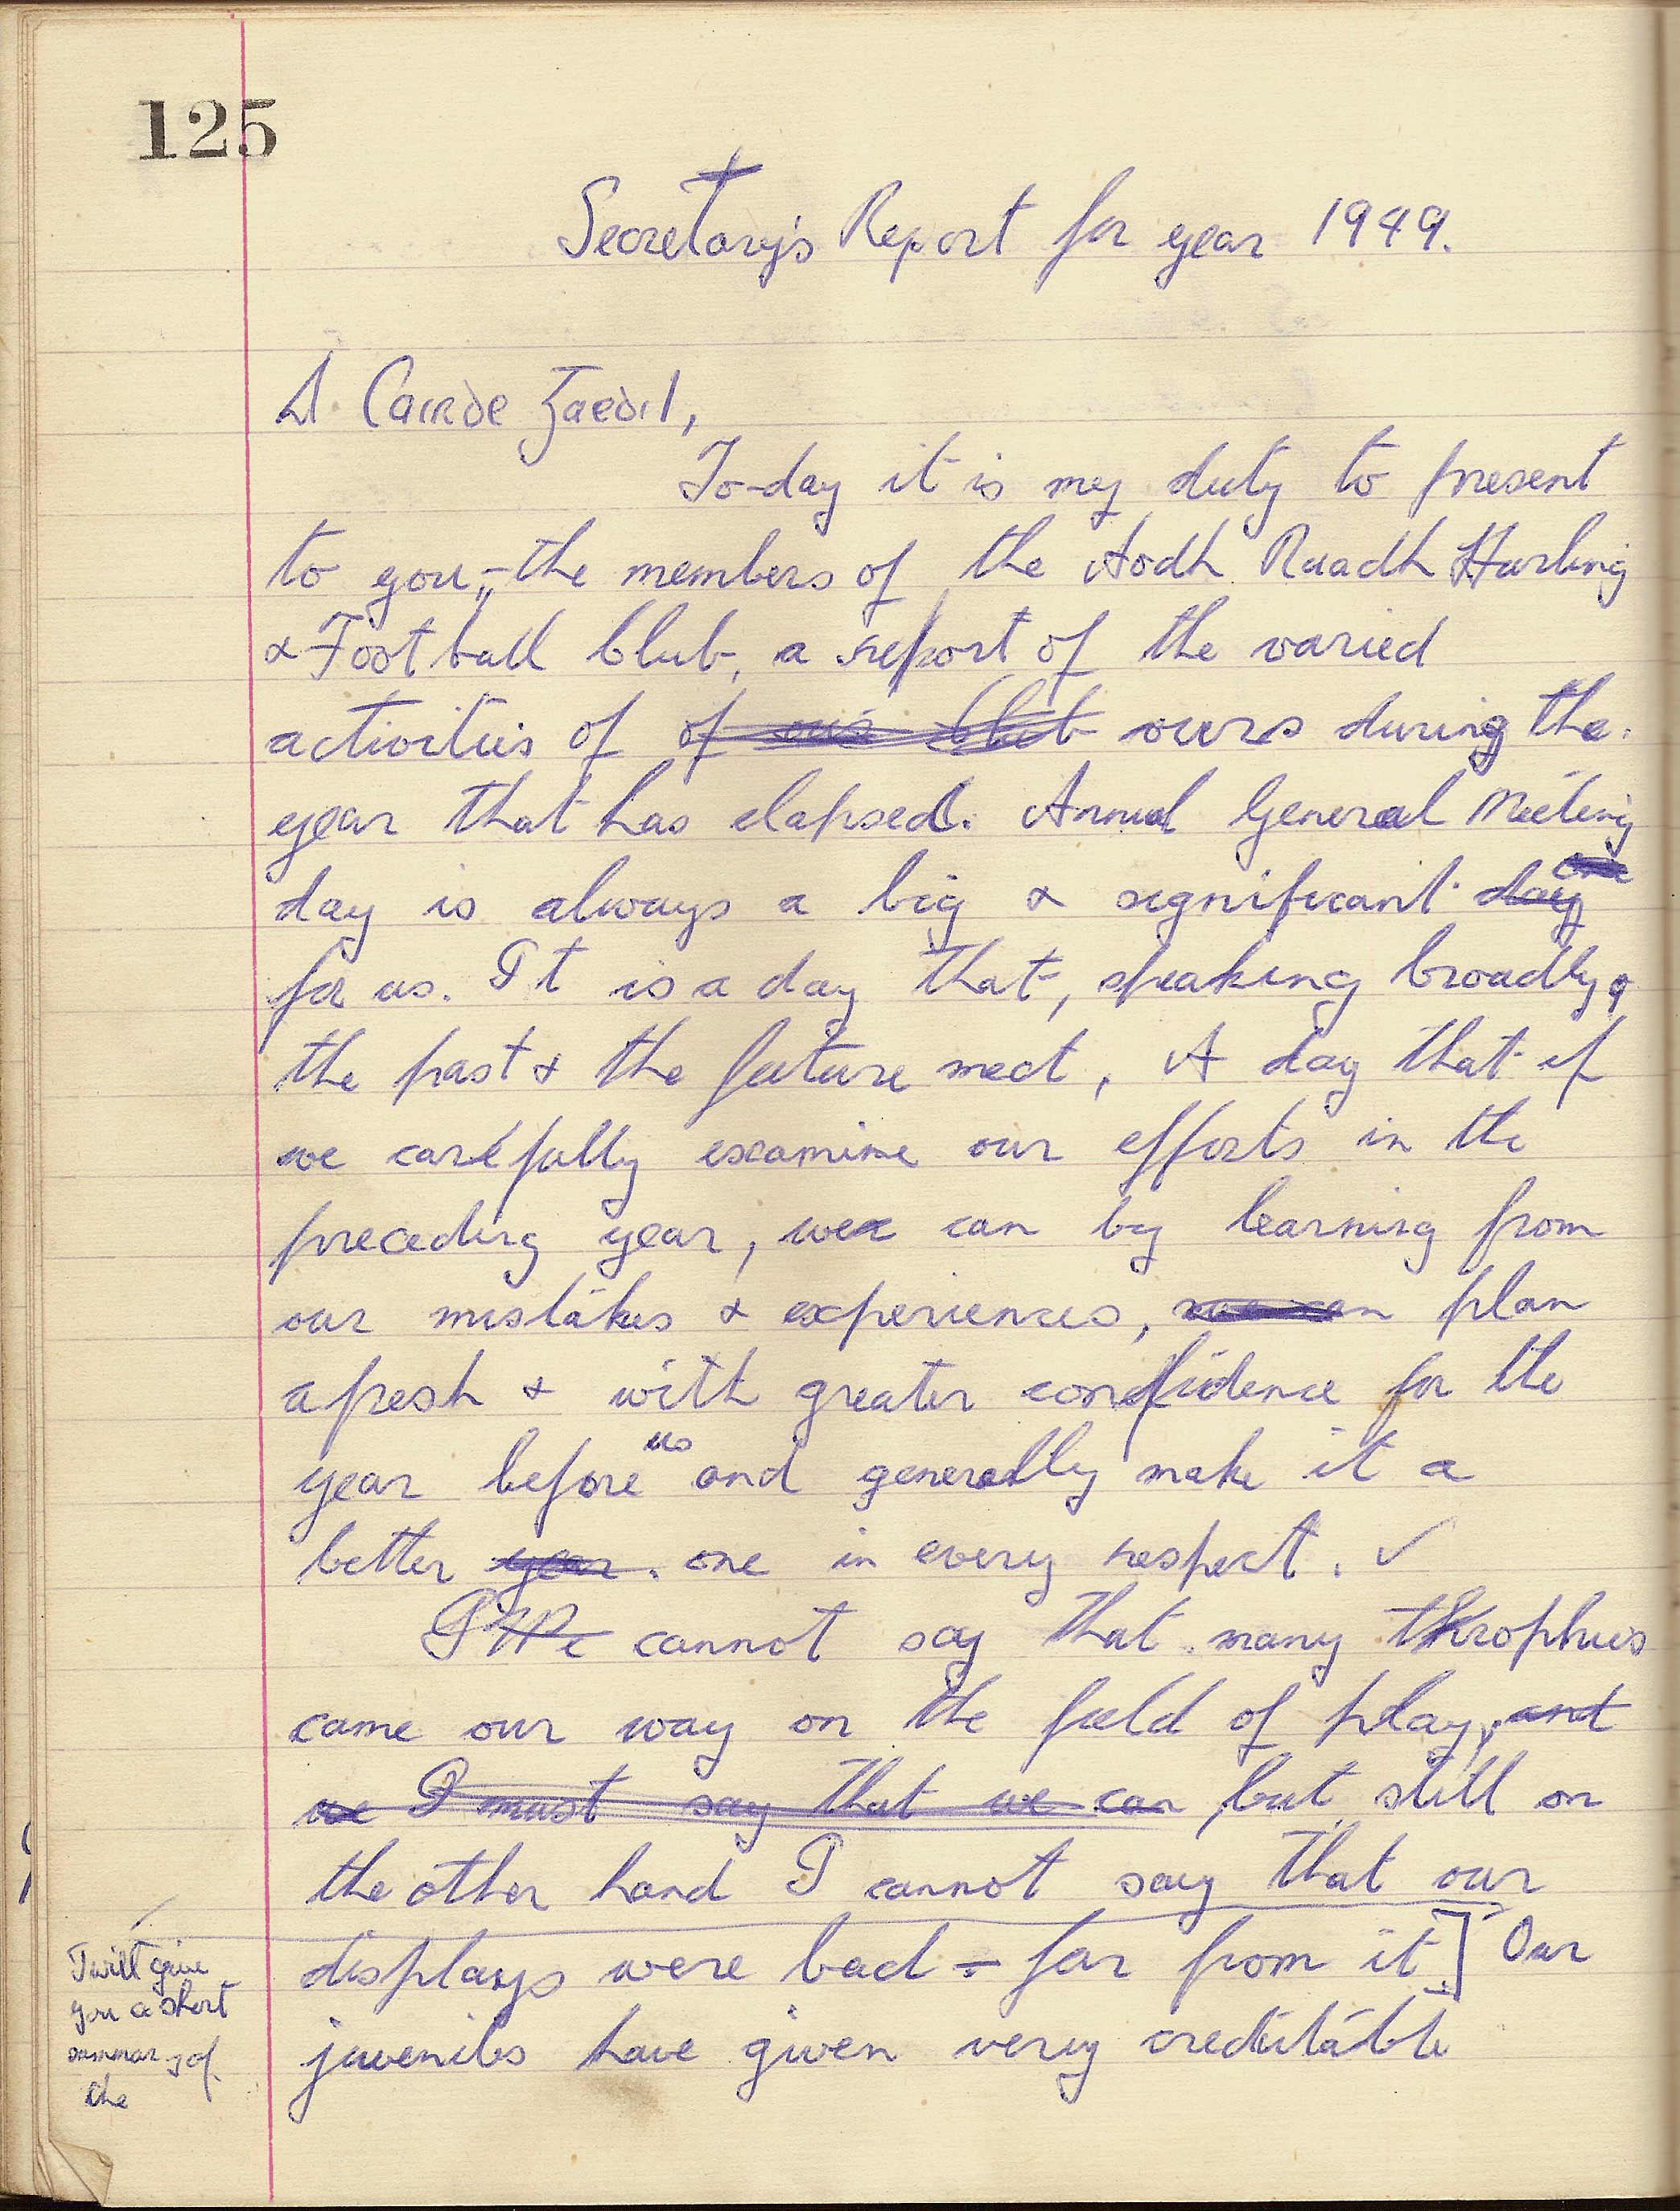 125
Secretary's Report for year 1949.
A Cairde Gaedil,
To-day it is my duty to present
to you,-the members of the Aodh Ruadh Hurling
& Football Club, a report of the varied
activities of of our club ours during the
year that has elapsed. Annual General Meeting
day is always a big & significant day one
for us. It is a day that, speaking broadly,
the past & the future meet, A day that if
we carefully examine our efforts in the
preceding year, we can by learning from
our mistakes & experiences, we can plan
afresh & with greater confidence for the
year before us and generally make it a
better year. one in every respect. ✓
I We cannot say that many throphies
came our way on the field of play, and
we I must say that we can but still on
the other hand I cannot say that our
displays were bad - far from it.] Our
juveniles have given very creditable
I will give
you a short
summary of
the